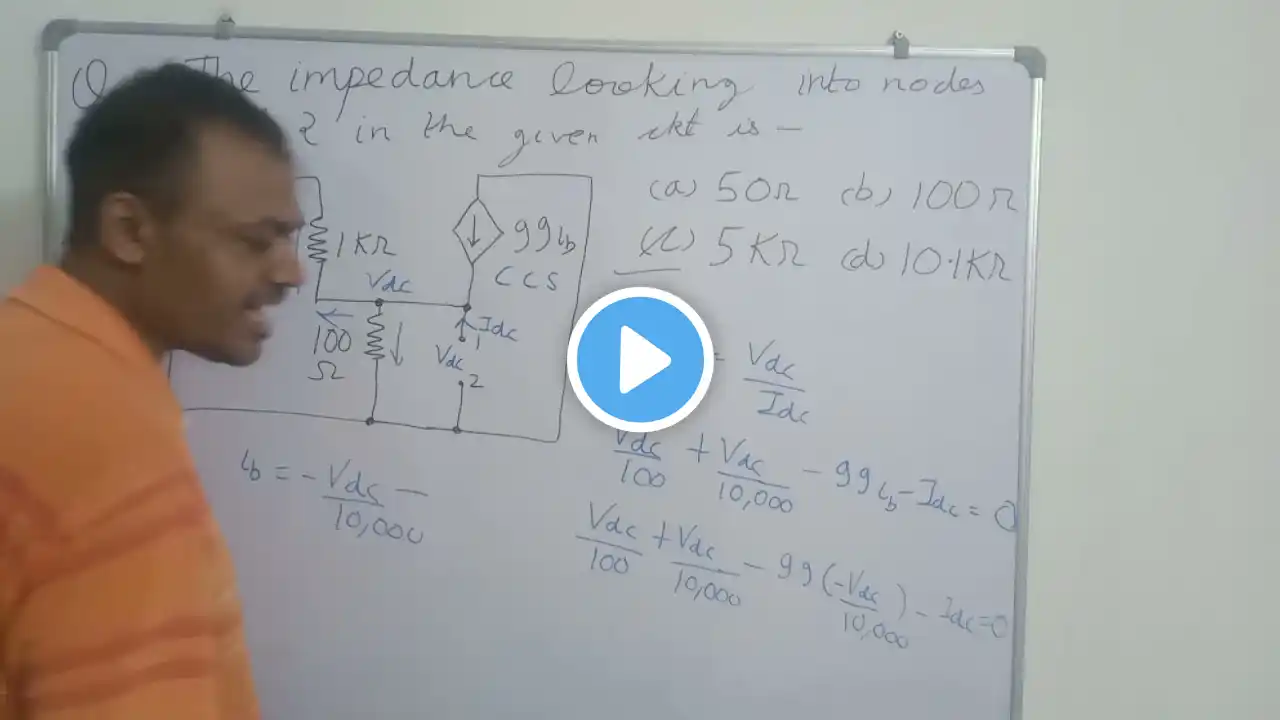 Q The impedance looking into nodes
2 in the given ckt is —
(a) 50Ω (b) 100Ω
(c) 5KΩ (d) 10.1KΩ
1KΩ
99ib
CCS
Vdc
100
Ω
Idc
1
Vdc
2
= Vdc/Idc
Vdc/100 + Vdc/10,000 - 99ib - Idc = 0
ib = -Vdc/10,000 —
Vdc/100 + Vdc/10,000 - 99(-Vdc/10,000) - Idc = 0